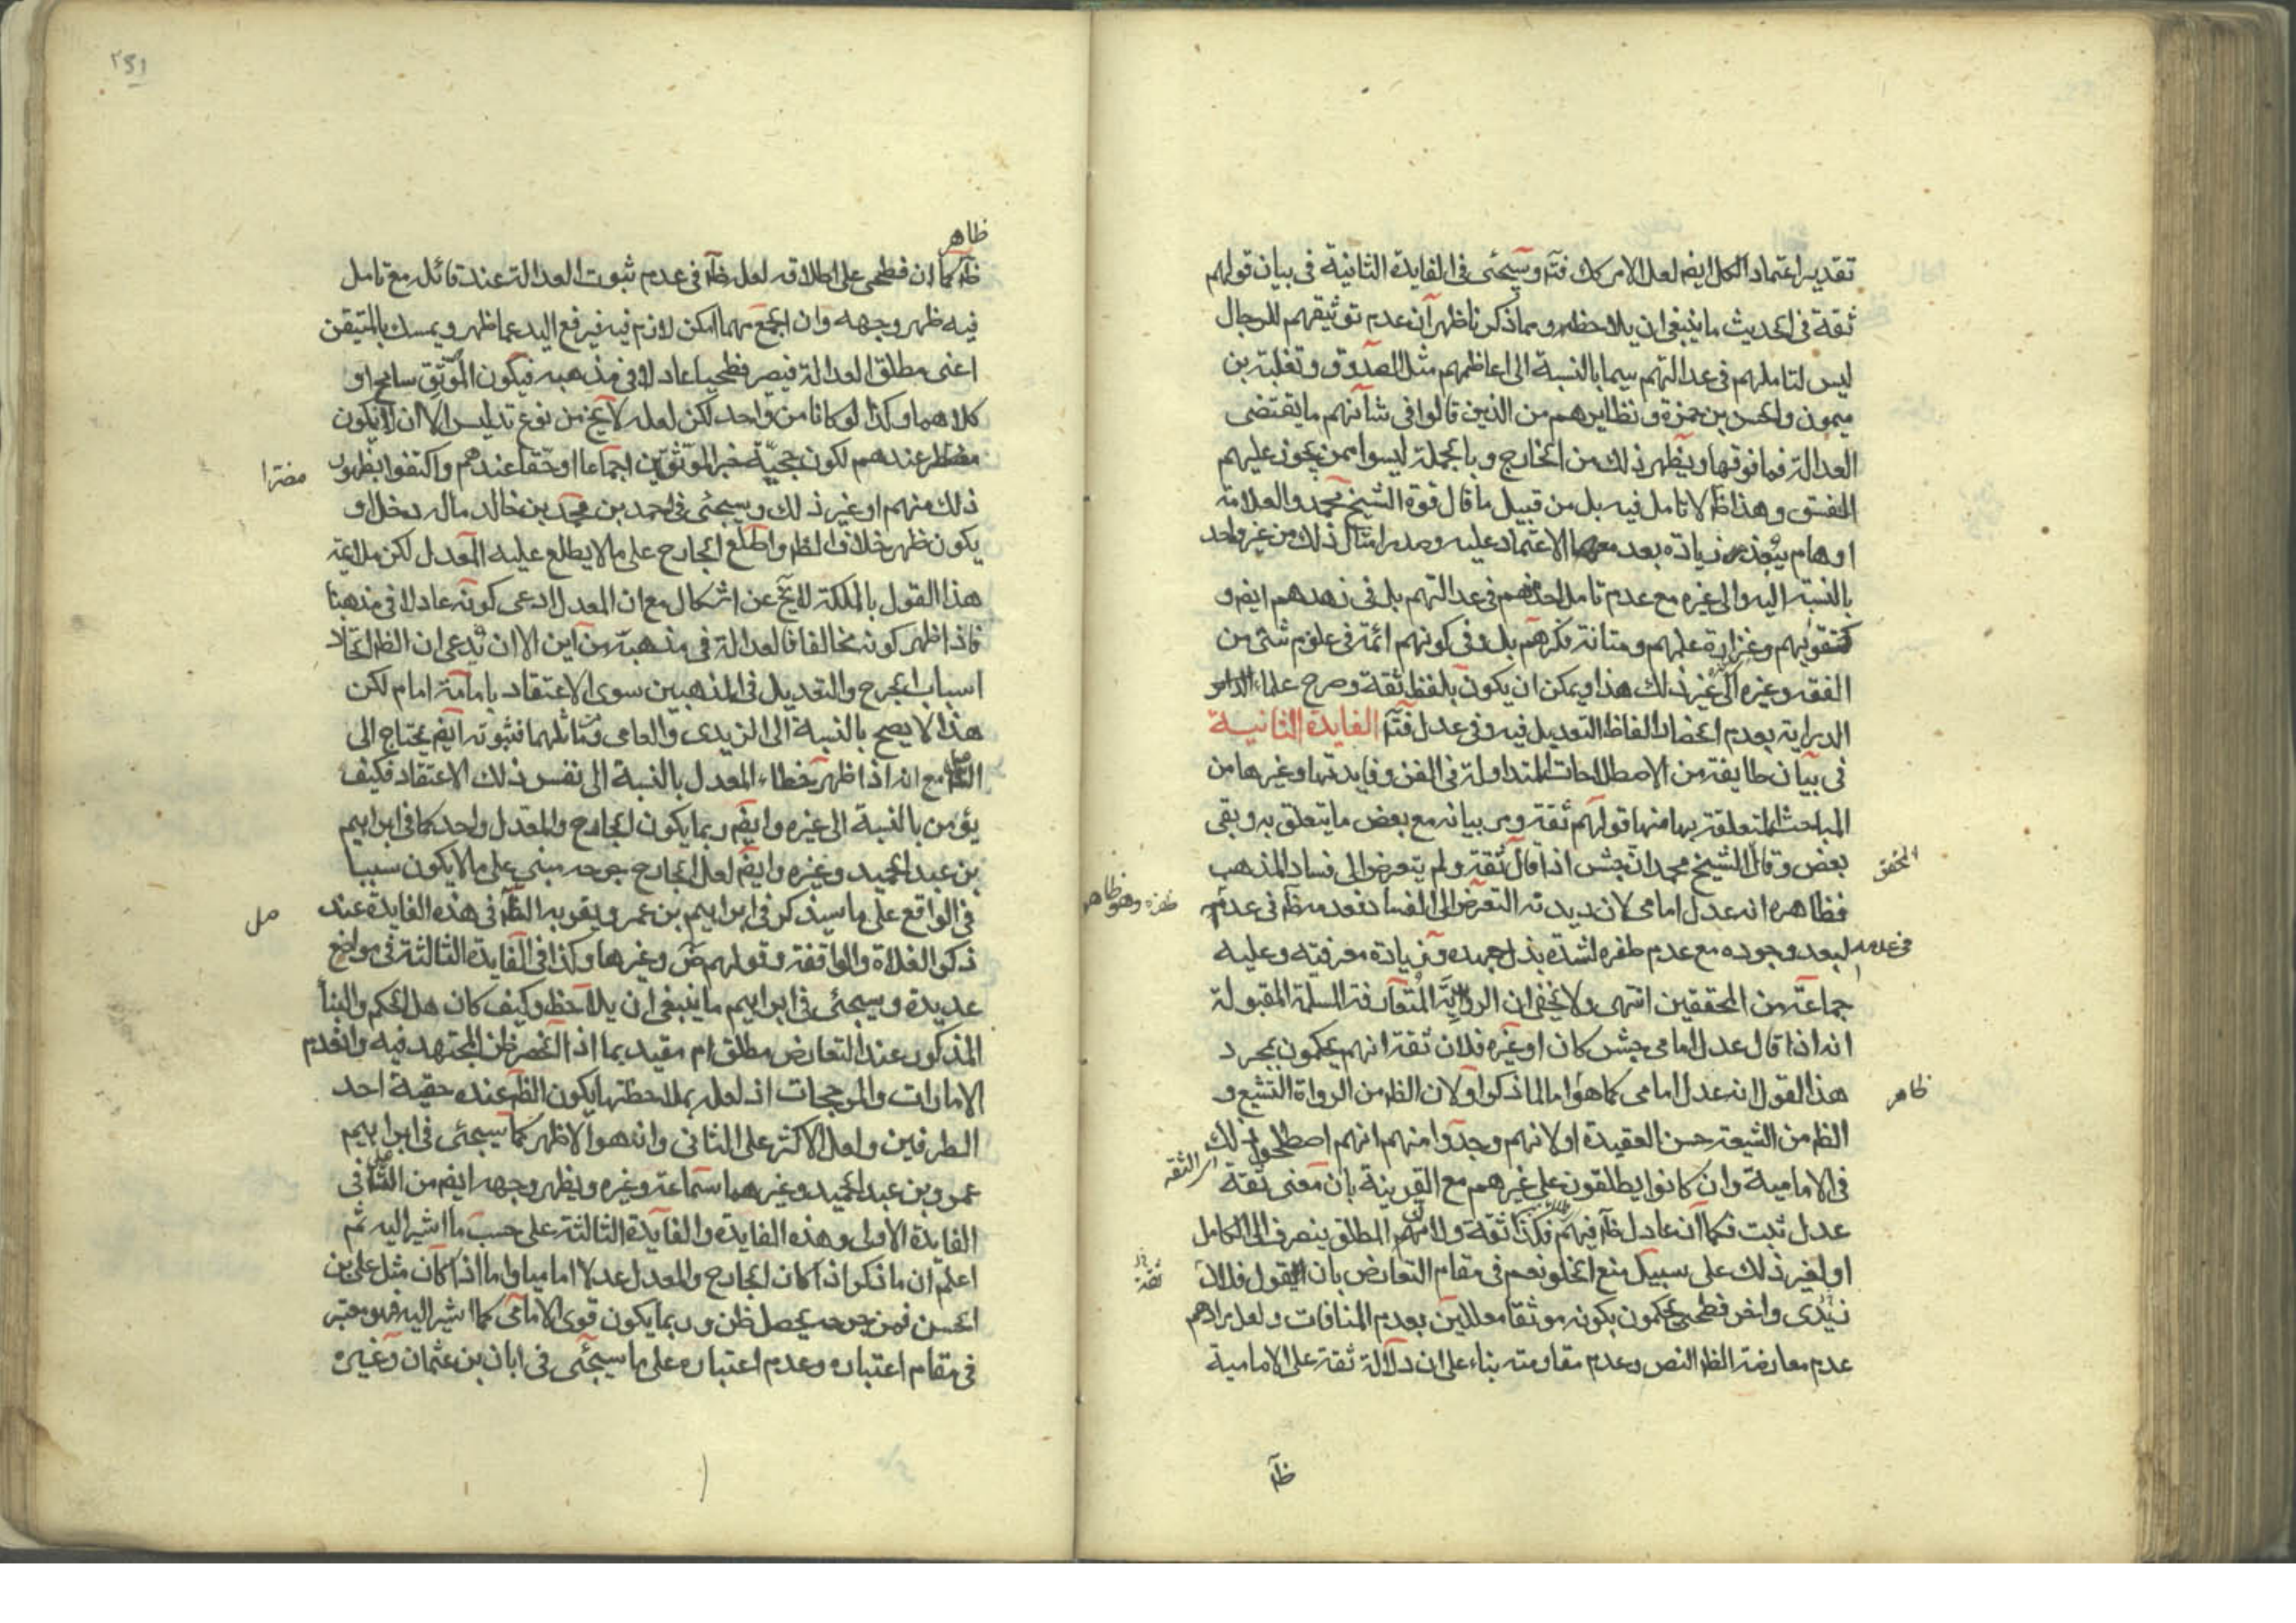 تقدير اعتماد الكل ايضا لعل الامر كك فتأ وسيجئ فى الفايدة الثانية فى بيان قولهم
ثقة فى الحديث ما ينبغى ان يلاحظ ومما ذكرنا ظهر ان عدم توثيقهم للرجال
ليس لتاملهم فى عدالتهم سيما بالنسبة الى اعاظمهم مثل الصدوق وثعلبة بن
ميمون والحسن بن حمزة ونظايرهم من الذين قالوا فى شأنهم ما يقتضى
العدالة فما فوقها ويظهر ذلك من الخارج وبالجملة ليسوا ممن يجوز عليهم
الفسق وهذا ظ لا تامل فيه بل من قبيل ما قال قوة الشيخ محمد والعلامة
اوهام زيادة بعد الاعتماد عليه وصدر امثال ذلك من غير واحد
بالنسبة اليه والى غيره مع عدم تامل احد منهم فى عدالتهم بل فى زهدهم ايض و
تقويهم وغزارة علمهم ومتانة فكرهم بل وفى كونهم ائمة فى علوم شتى من
الفقه وغيره الى غير ذلك هذا ويمكن ان يكون بلفظ ثقة وصرح علماء
الدراية بعدم انحصار الفاظ التعديل فيه وفى عدل فتأ الفايدة الثانية
فى بيان طايفة من الاصطلاحات المتداولة فى الفن وفايدتها وغيرها من
المباحث المتعلقة بها منها قولهم ثقة ومر بيانه مع بعض ما يتعلق به وبقى
بعض وقال الشيخ محمد ان جش اذا قال ثقة ولم يتعرض الى فساد المذهب
المحقق
فظاهره انه عدل امامى لان ديدنه التعرض الى الفساد فعدمه ظ فى عدمه
وهو ظاهر
فى عدمه
لبعد وجوده مع عدم ظفره لشدة بذل جهده وزيادة معرفته وعليه
جماعة من المحققين انتهى ولا يخفى ان الرواية المتعارفة المسلمة المقبولة
انه اذا قال عدل امامى جش كان او غيره فلان ثقة انهم يحكمون بمجرد
هذا القول انه عدل امامى كما هو اما لما ذكر او لان الظ من الرواة التشيع و
ظاهر
الظ من الشيعة حسن العقيدة او لانهم وجدوا منهم انهم اصطلحوا ذلك
فى الامامية وان كانوا يطلقون على غيرهم مع القرينة بان معنى ثقة
عدل ثبت فكما ان عادل ظ فيهم فكذا ثقة ولان المطلق ينصرف الى الكامل
او لغير ذلك على سبيل منع الخلو نعم فى مقام التعارض بان يقول فلان
ثقة
زيدى واخر فطحى يحكمون بكونه موثقا معللين بعدم المنافات ولعل مرادهم
عدم معارضة الظ النص وعدم مقاومته بناء على ان دلالة ثقة على الامامية
ظ
٢٥١
ظاهر
ظ كما ان فطحى على اطلاقه لعل ظ فى عدم ثبوت العدالة عند قائله مع تامل
فيه ظهر وجهه وان الجمع مهما امكن لازم فيه فيرفع اليد عما ظهر ويمسك بالمتيقن
اعنى مطلق العدالة فيصير فطحيا عادلا فى مذهبه فيكون الموثق سامح او
كلاهما وكذا لو كانا من واحد لكن لعله لا يخ من نوع تدليس الا ان لا يكون
مضرا
عندهم لكون حجية خبر الموثقين اجماعا او حقا عندهم واكتفوا بظهور
ذلك منهم او غير ذلك وسيجئى فى احمد بن محمد بن خالد ماله دخل او
يكون ظهر خلاف الظ واطلع الجارح على ما لا يطلع عليه المعدل لكن ملايمة
هذا القول بالملكة لا يخ عن اشكال مع ان المعدل ادعى كونه عادلا فى مذهبنا
فاذا ظهر كونه مخالفا فالعدالة فى مذهبه من اين الا ان تدعى ان الظ اتحاد
اسباب الجرح والتعديل فى المذهبين سوى الاعتقاد بامامة امام لكن
هذا لا يصح بالنسبة الى الزيدى والعامى ومثالهما فثبوته ايض يحتاج الى
التأمل مع انه اذا ظهر خطاء المعدل بالنسبة الى نفس ذلك الاعتقاد فكيف
يؤمن بالنسبة الى غيره وايض ربما يكون الجارح والمعدل واحد كما فى ابراهيم
بن عبد الحميد وغيره وايض لعل الجارح جرحه مبنى على ما لا يكون سببا
فى الواقع على ما سيذكر فى ابراهيم بن عمر ويقويه الظ فى هذه الفايدة عند
مل
ذكر الغلاة والواقفة وقولهم ض وغيرها وكذا فى الفايدة الثالثة فى مواضع
عديدة وسيجئى فى ابراهيم ما ينبغى ان يلاحظ وكيف كان هل الحكم والبنأ
المذكور عند التعارض مطلق ام مقيد بما اذا انحصر ظن المجتهد فيه وانعدم
الامارات والمرجحات اذ لعل بملاحظتها يكون الظ عنده حقية احد
الطرفين ولعل الاكثر على الثانى وانه هو الاظهر كما سيجئى فى ابراهيم
عمر وبن عبد الحميد وغيرهما سماعة وغيره ويظهر وجهه ايض من التأمل فى
الفايدة الاولى وهذه الفايدة والفايدة الثالثة على حسب ما اشير اليه ثم
اعلم ان ما ذكر اذا كان الجارح والمعدل عدلا اماميا واما اذا كان مثل على بن
الحسن فمن جرحه يحصل ظن وربما يكون قوى الامامى كما اشير اليه فهو معتبر
فى مقام اعتباره وعدم اعتباره على ما سيجئى فى ابان بن عثمان وغيره